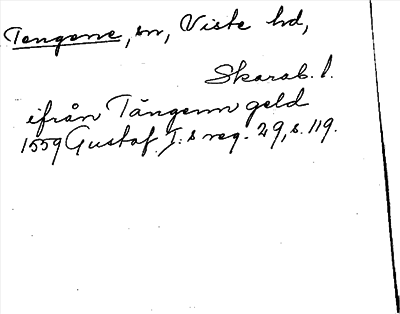 Tengene, sn, Viste hd,
Skarab. l.
ifrån Tängenn geld
1559 Gustaf I:s reg. 29, s. 119.